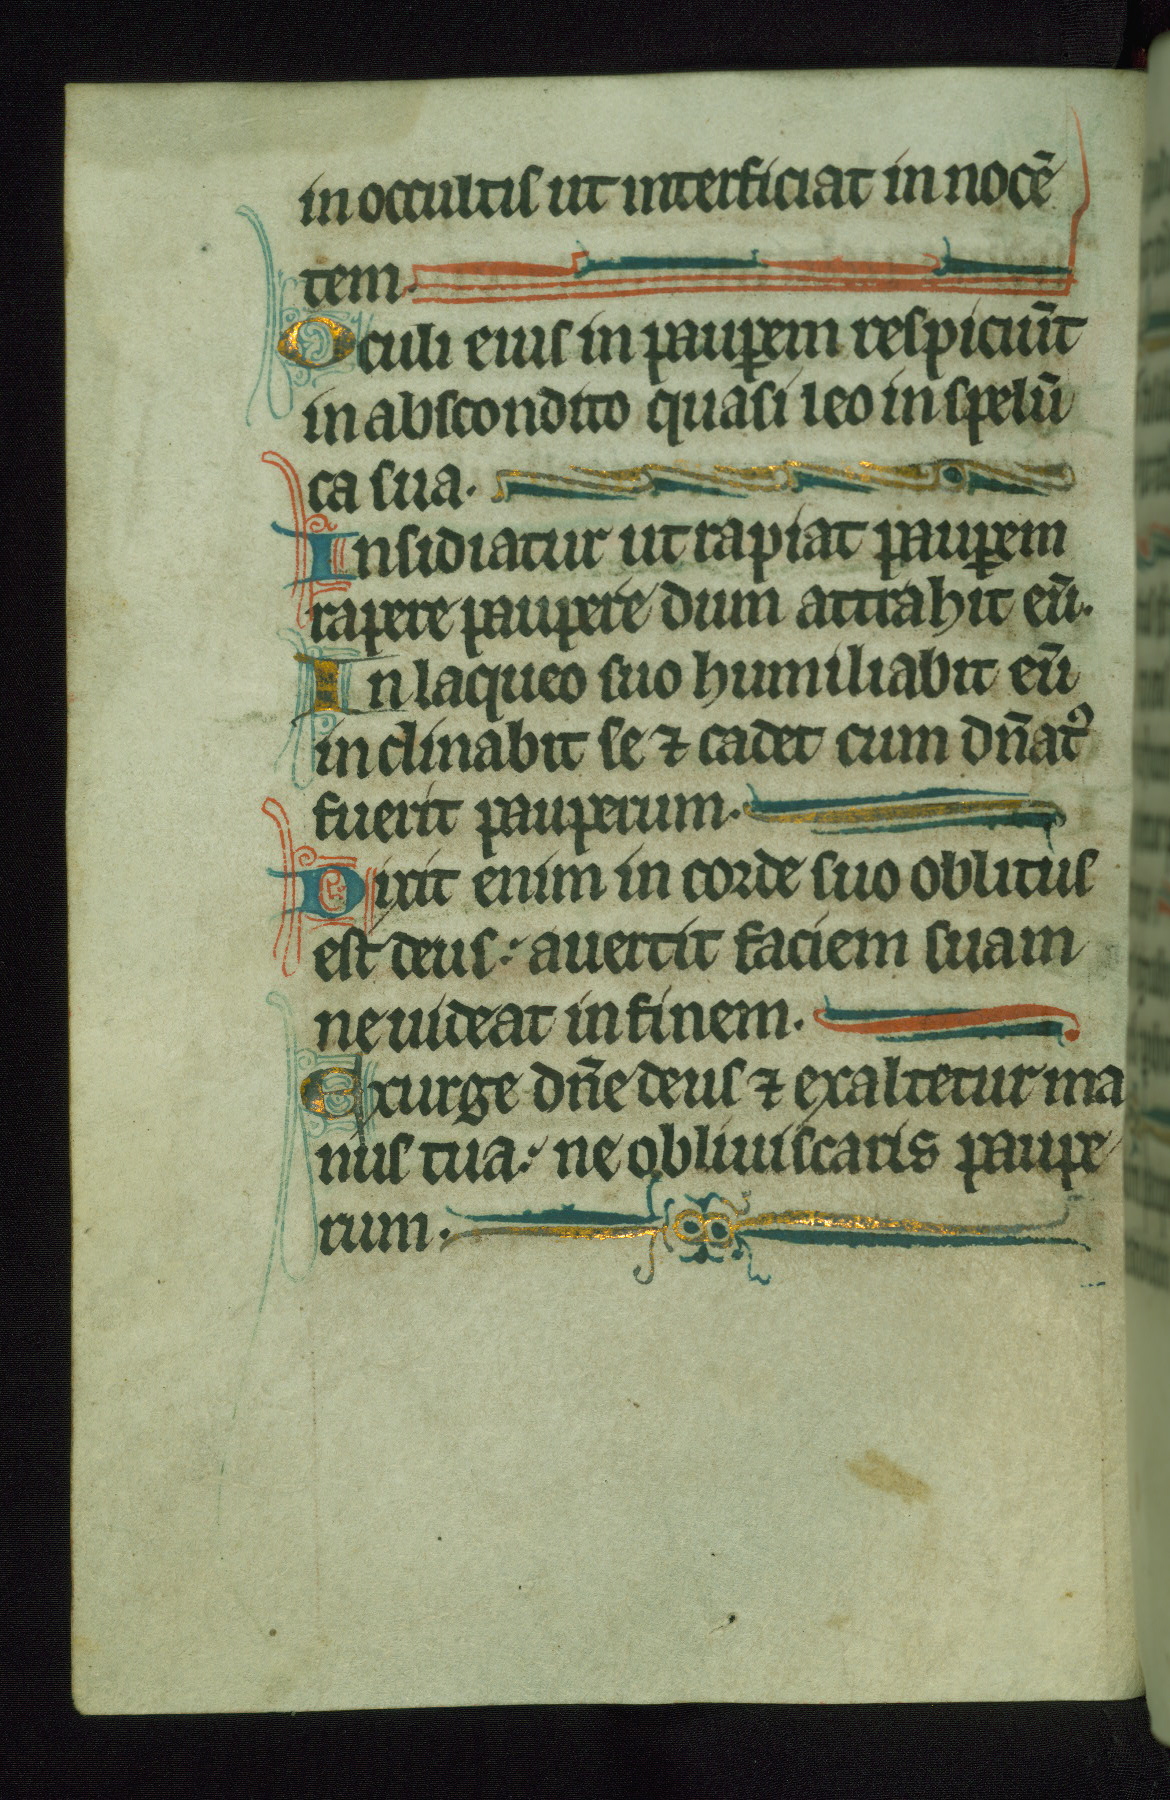 in occultis ut interficiat in nocē
tem.
Oculi eius in pauꝑem respiciūt
in abscondito quasi leo in spelū
ca sua.
Insidiatur ut rapiat pauꝑem
rapere paupere dum attrahit eū.
In laqueo suo humiliabit eū
inclinabit se ⁊ cadet cum dn̄atꝰ
fuerit pauperum.
Dixit enim in corde suo oblitus
est deus: auertit faciem suam
ne uideat in finem.
Exurge dn̄e deus ⁊ exaltetur ma
nus tua: ne obliuiscaris paupe
rum.